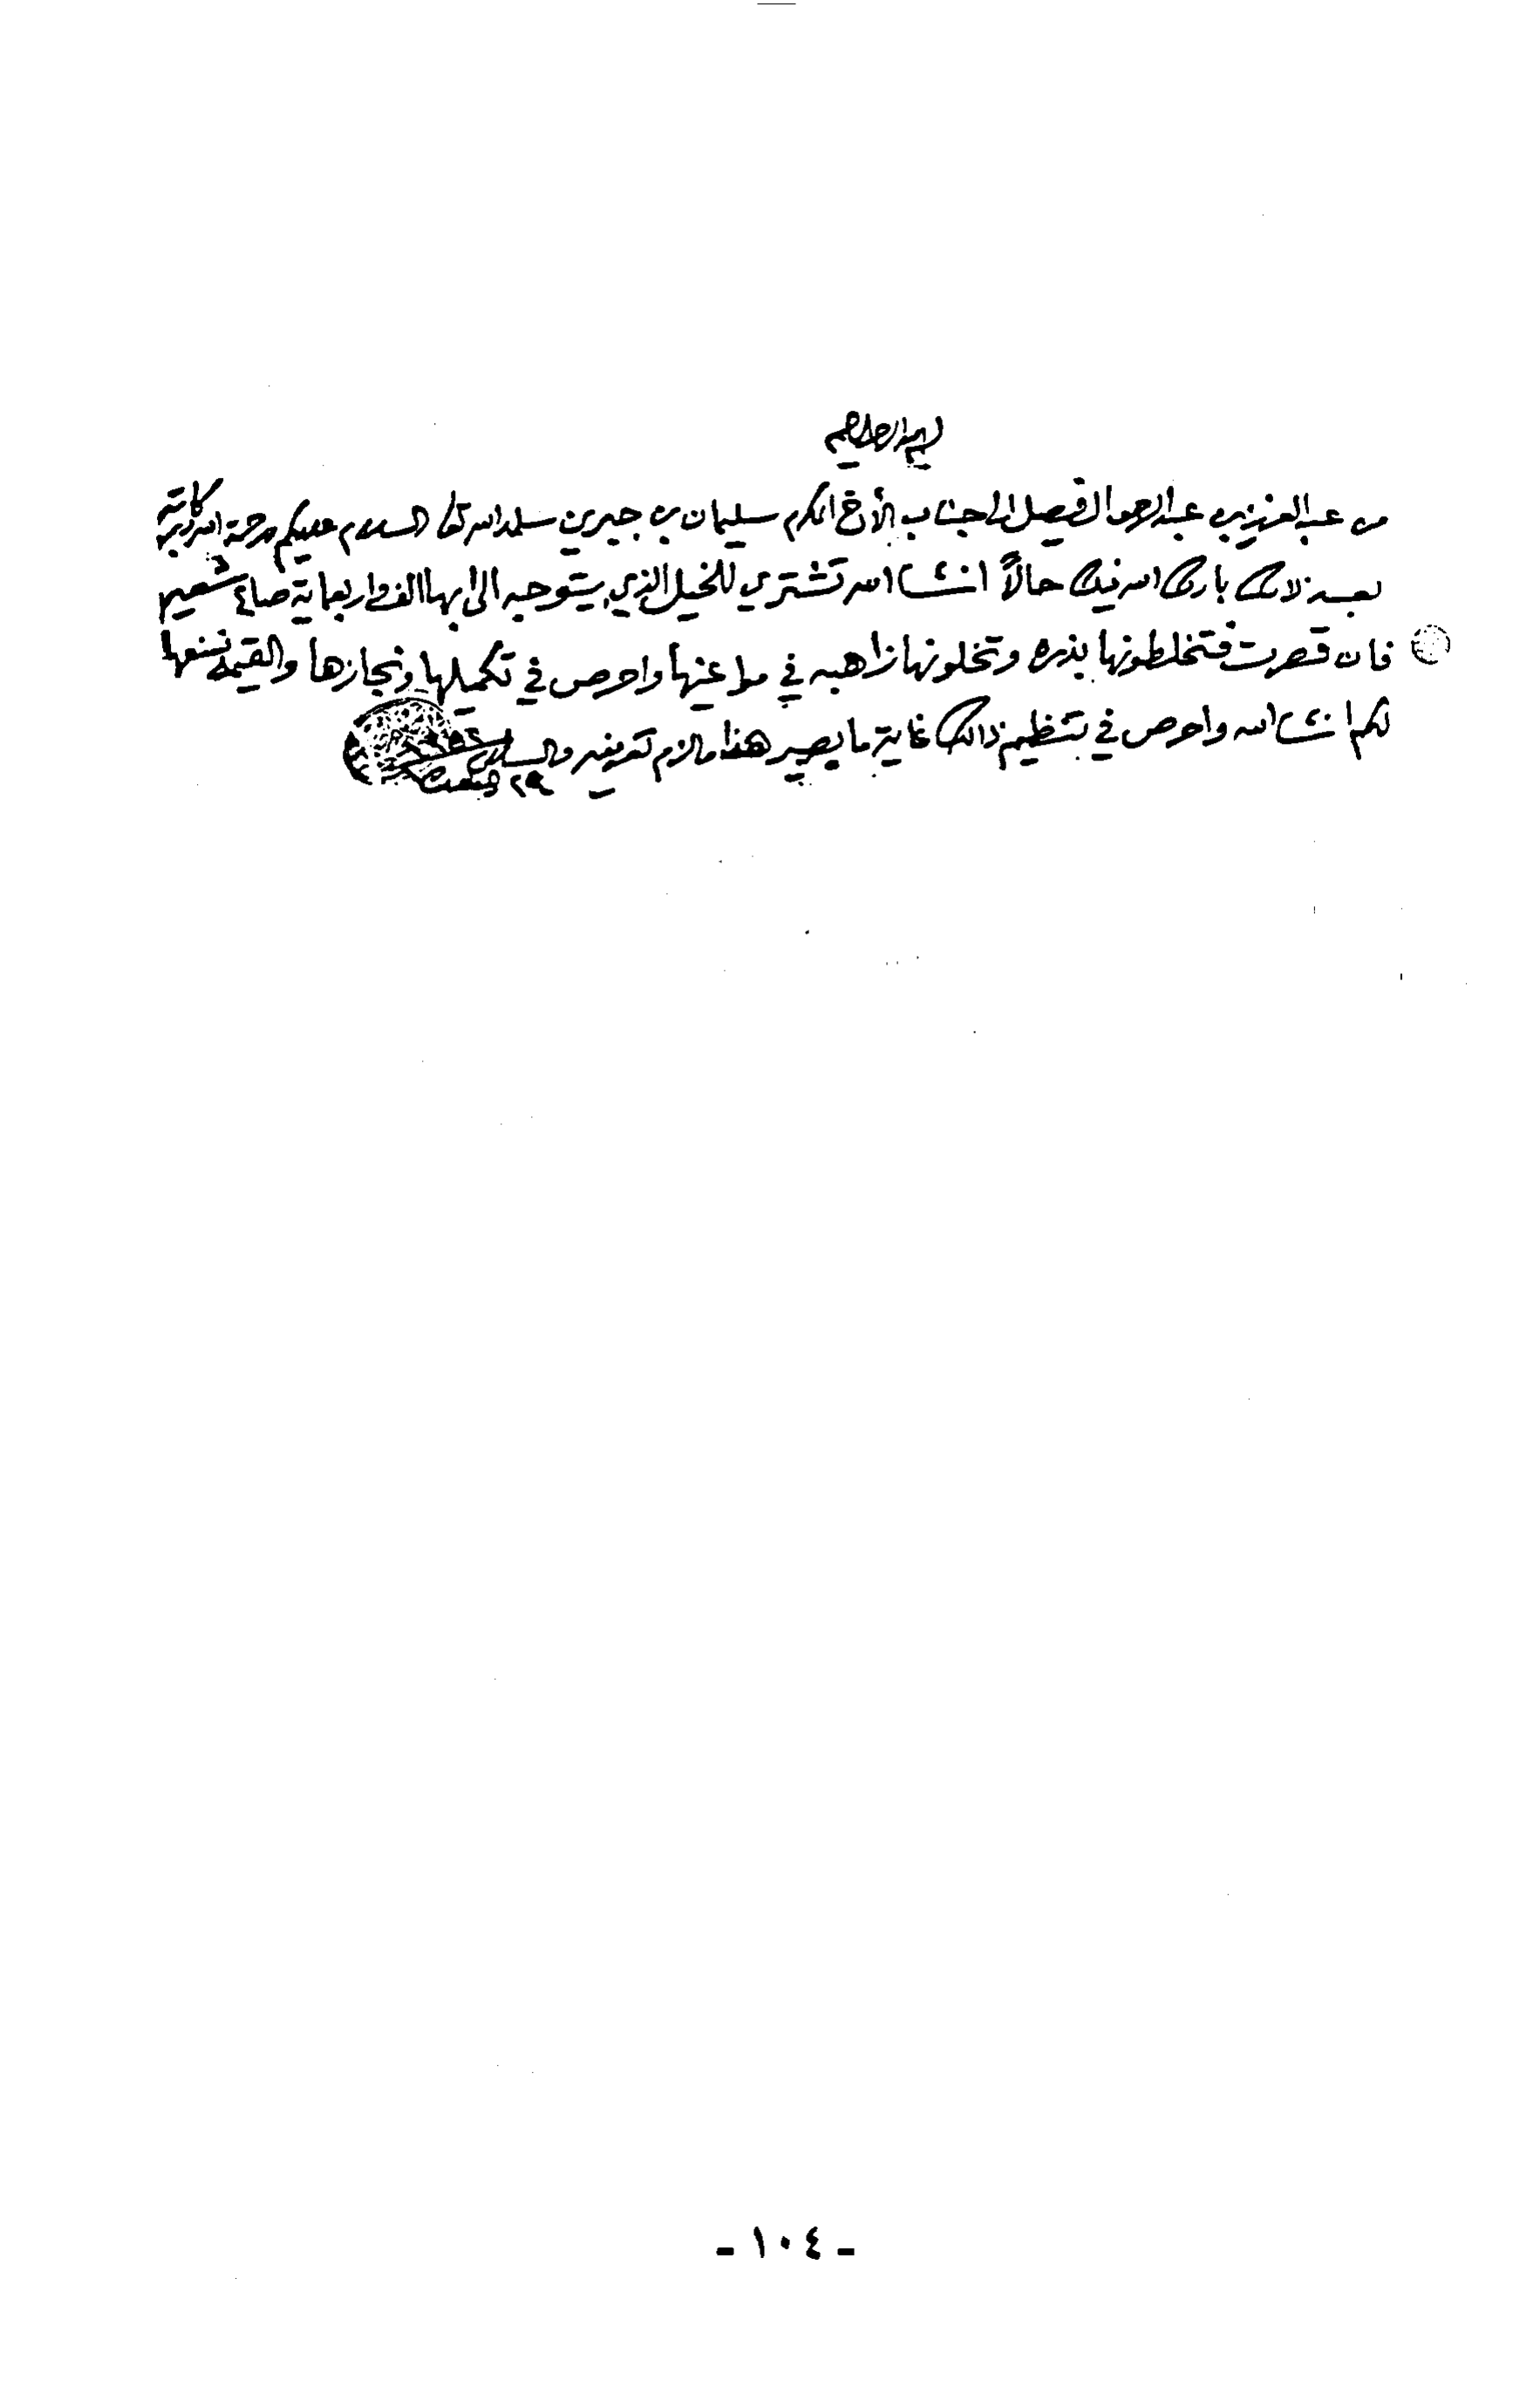 بسم الله الرحمن الرحيم
من عبد العزيز بن عبد الرحمن الفيصل الى جناب الأخ المكرم سليمان بن جبرين سلمه الله تعالى السلام عليكم ورحمة الله وبركاته
بعد ذلك بارك الله فيك حالاً انشاء الله تشتري للخيل الذي يتوجه الى ابها الف واربعماية صاع شعير
فان قصرت فتخلطونها بذره وتخلونها زاهبه في مواعينها واحرص في تكميلها ونجازها والقيمه ننفعها
لكم انشاء الله واحرص في تنظيم ذالك غاية ما يصير هذا مالزم تعريفه والسلام
٢٩
- ١٠٤ -